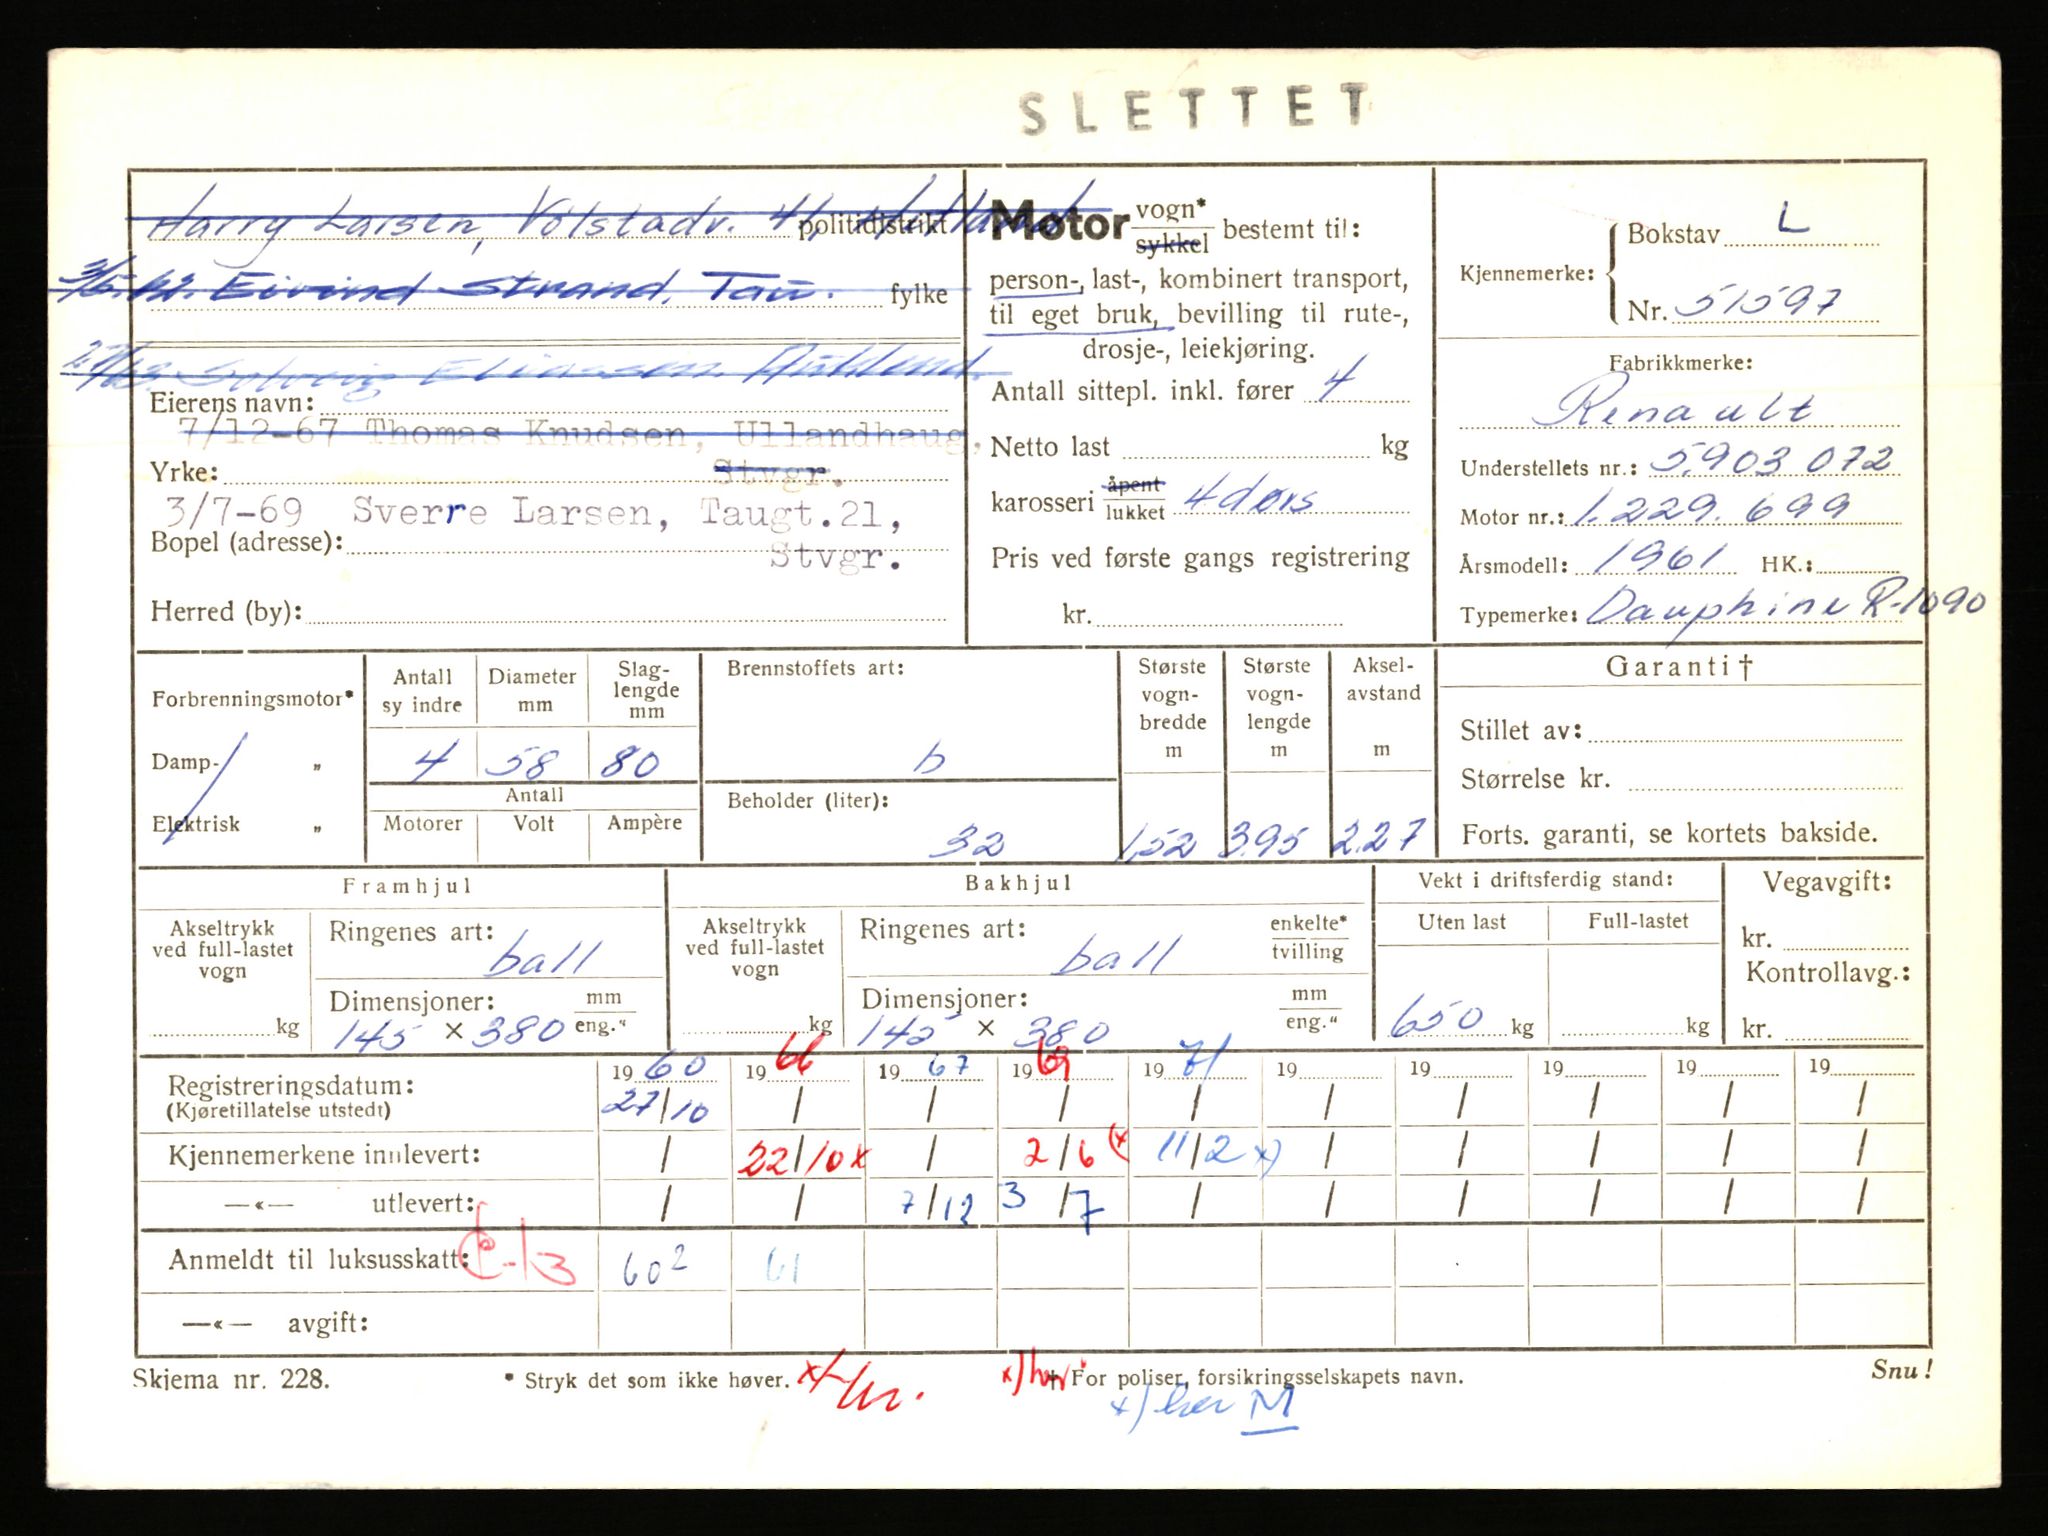 SLETTET
Harry Larsen, Volstadv. 41, politidistrikt
Eivind Strand, Tau. fylke
Solveig Eliassen
Eierens navn:
7/12-67 Thomas Knudsen, Ullandhaug,
Yrke: Stvgr.
3/7-69 Sverre Larsen, Taugt.21,
Bopel (adresse): Stvgr.
Herred (by):
Motor vogn* sykkel bestemt til:
person-, last-, kombinert transport,
til eget bruk, bevilling til rute-,
drosje-, leiekjøring.
Antall sittepl. inkl. fører 4
Netto last kg
karosseri åpent lukket 4 dørs
Pris ved første gangs registrering
kr.
Kjennemerke: Bokstav L
Nr. 51597
Fabrikkmerke:
Renault
Understellets nr.: 5.903 072
Motor nr.: 1.229.699
Årsmodell: 1961 HK.:
Typemerke: Dauphine R-1090
Forbrenningsmotor*
Damp- „
Elektrisk „
Antall sy indre 4
Diameter mm 58
Slag-lengde mm 80
Antall
Motorer Volt Ampère
Brennstoffets art:
b
Beholder (liter):
32
Største vogn-bredde m 1,52
Største vogn-lengde m 3.95
Aksel-avstand m 2.27
Garanti †
Stillet av:
Størrelse kr.
Forts. garanti, se kortets bakside.
Framhjul
Akseltrykk ved full-lastet vogn kg
Ringenes art: ball
Dimensjoner: mm eng."
145 × 380
Bakhjul
Akseltrykk ved full-lastet vogn kg
Ringenes art: enkelte* tvilling
ball
Dimensjoner: mm eng."
145 × 380
Vekt i driftsferdig stand:
Uten last Full-lastet
650 kg kg
Vegavgift:
kr.
Kontrollavg.:
kr.
Registreringsdatum: 1960 1966 1967 1969 1971 19 19 19 19 19
(Kjøretillatelse utstedt) 27/10 / / / / / / / / /
Kjennemerkene innlevert: / 22/10 x / 2/6 (x 11/2 x) / / / / /
—«— utlevert: / / 7/12 3/7 / / / / / /
Anmeldt til luksusskatt: 60² 61
—«— avgift:
Skjema nr. 228. * Stryk det som ikke høver. † For poliser, forsikringsselskapets navn. Snu!
x) her M